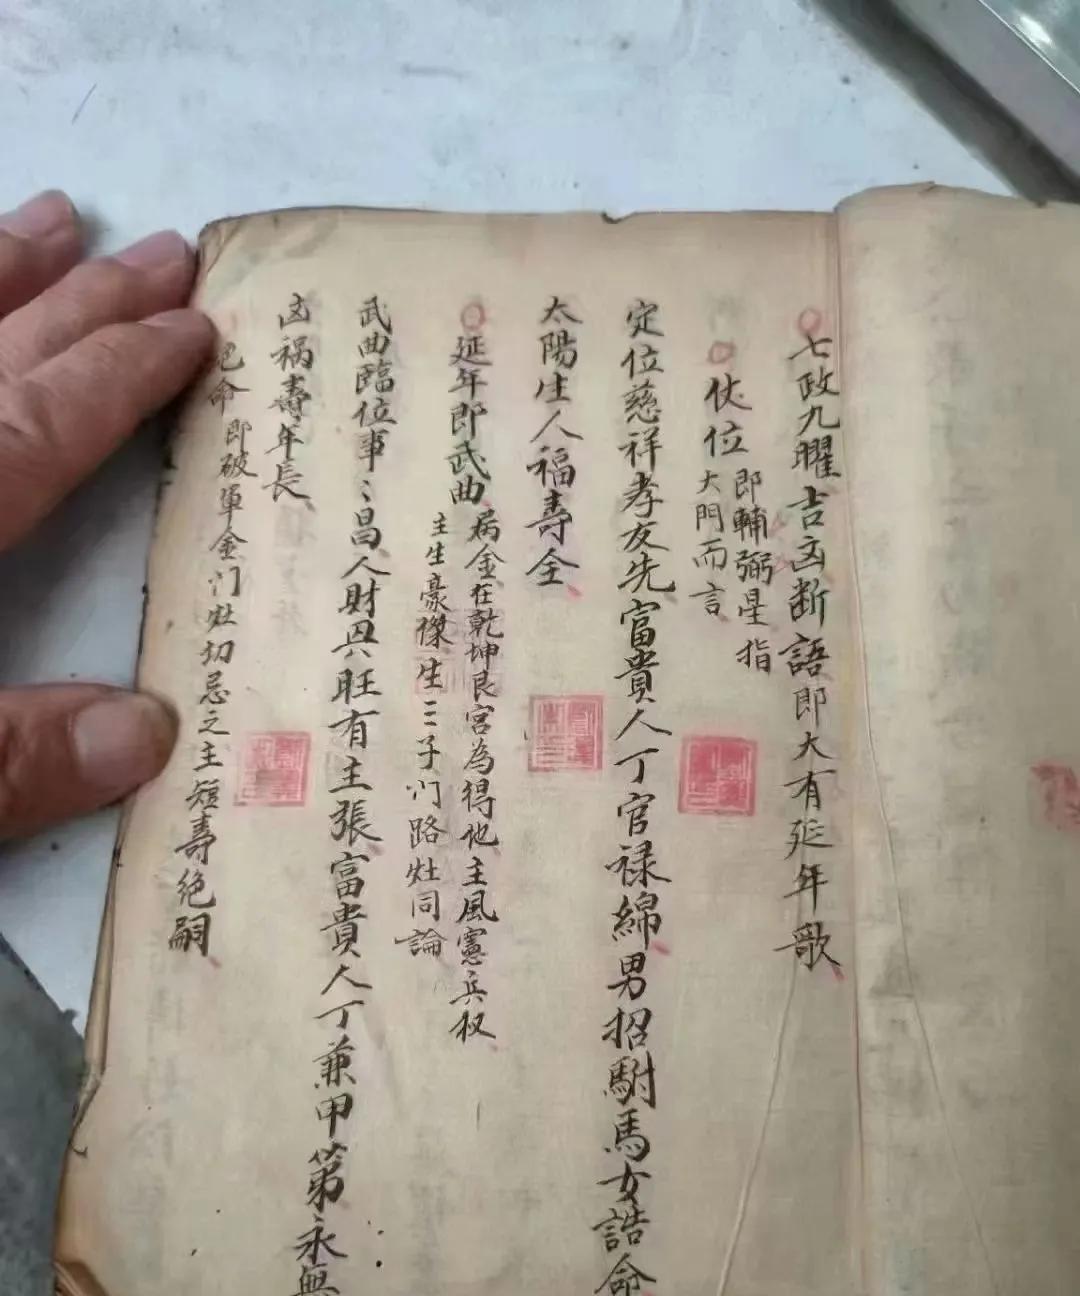 七政九曜吉凶断語即大有延年歌
伏位
即輔弼星指
大門而言
定位慈祥孝友先富貴人丁官禄綿男招駙馬女誥命
太陽生人福壽全
延年即武曲
病金在乾坤艮宮為得地主風憲兵权
主生豪傑生三子门路灶同論
武曲臨位事〻昌人財興旺有主張富貴人丁兼甲第永無
凶禍壽年長
絕命即破軍金门灶切忌之主短壽绝嗣